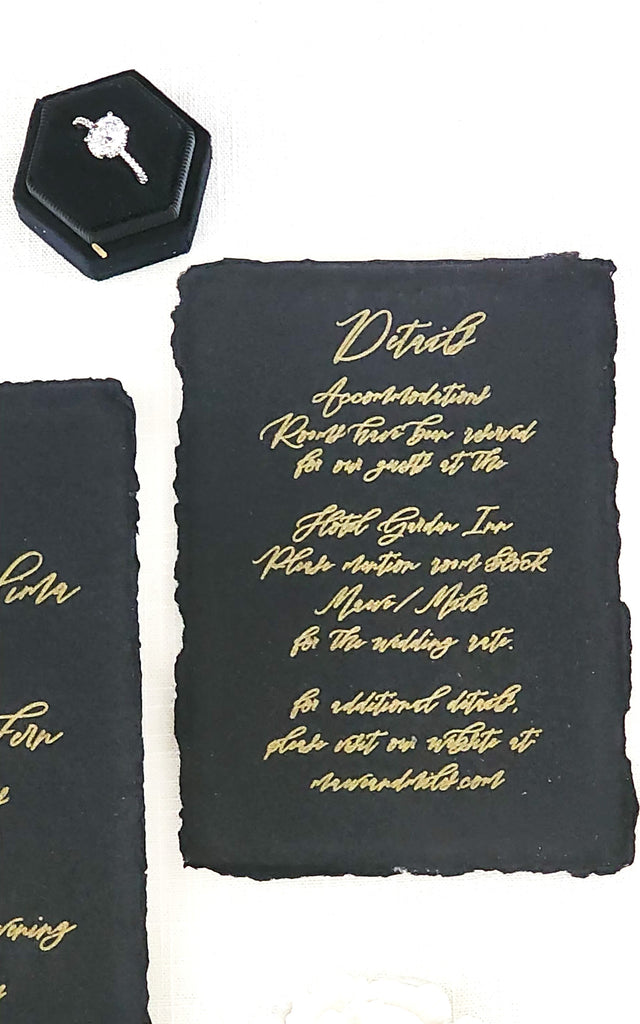 Details
Accommodations
Rooms have been reserved
for our guests at the
Hotel Garden Inn
Please mention room block
Maeve / Milo
for the wedding rate.
for additional details,
please visit our website at:
maeveandmilo.com
Fern
vening